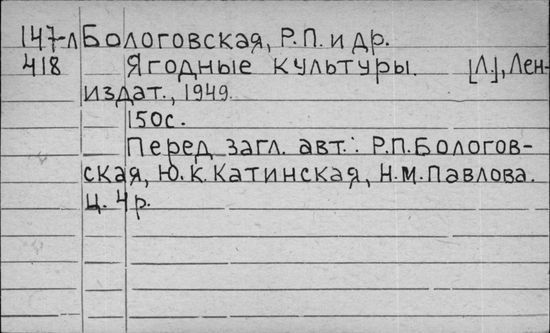 147-л Бологовская, Р.П. и др.
418 Ягодные культуры. [Л.], Лен-
издат., 1949.
150с.
Перед загл. авт.: Р.П. Бологов-
ская, Ю.К. Катинская, Н.М. Павлова.
Ц. 4 р.